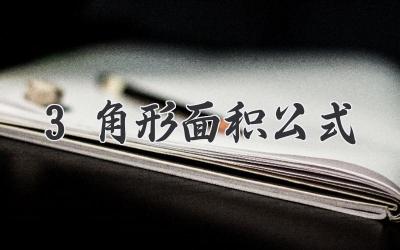 3 角形面积公式